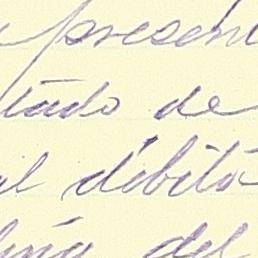 presen
tado de
al débito
del